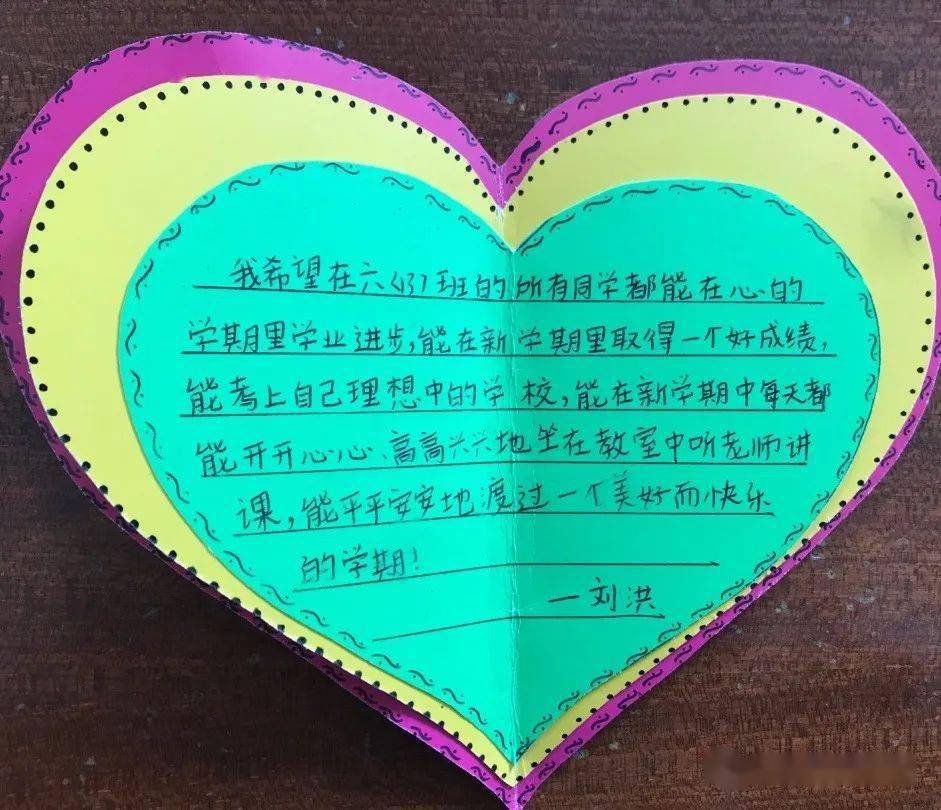 我希望在六(3)班的所有同学都能在心的
学期里学业进步,能在新学期里取得一个好成绩,
能考上自己理想中的学校,能在新学期中每天都
能开开心心、高高兴兴地坐在教室中听老师讲
课,能平平安安地渡过一个美好而快乐
的学期!
一刘洪